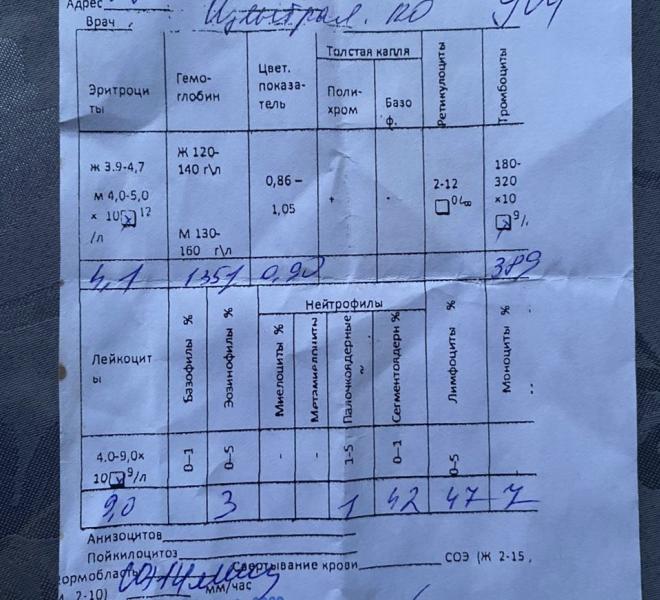 Адрес
Врач
Эритроци
ты
Гемо-
глобин
Цвет.
показа-
тель
Толстая капля
Поли-
хром
Базо
ф.
Ретикулоциты
Тромбоциты
Ж 3.9-4,7
м 4,0-5,0
х 10 12
/л
Ж 120-
140 г\л
М 130-
160 г\л
0,86 –
1,05
+
2-12
180-
320
×10
9/
4,1
135
0,9
389
Лейкоцит
ы
Базофилы %
Эозинофилы %
Нейтрофилы
Миелоциты %
Метамиелоциты
Палочкоядерные
Сегментоядерн %
Лимфоциты %
Моноциты %
4.0-9,0х
10 9/л
0–1
0–5
-
-
1-5
0–1
0-5
9,0
3
1
42
47
7
Анизоцитов
Пойкилоцитоз
ормобласты
Свертывание крови
СОЭ (Ж 2-15,
2-10)
мм/час